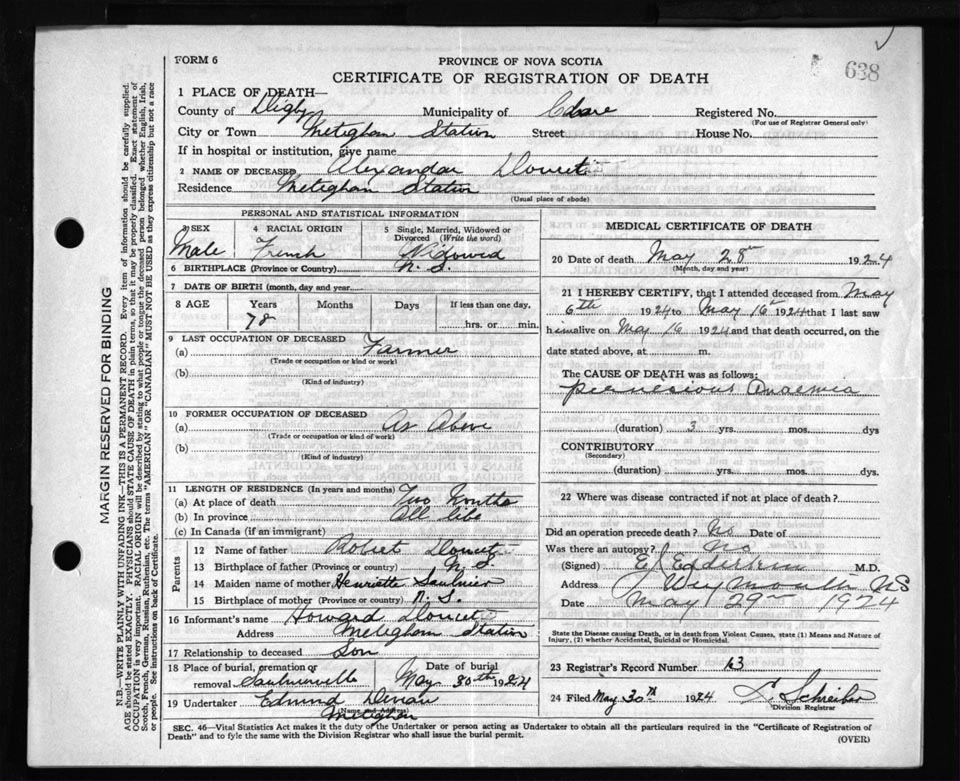 638
FORM 6
PROVINCE OF NOVA SCOTIA
CERTIFICATE OF REGISTRATION OF DEATH
1 PLACE OF DEATH—
County of Digby Municipality of Clare Registered No.
(For use of Registrar General only)
City or Town Meteghan Station Street House No.
If in hospital or institution, give name
2 NAME OF DECEASED Alexandar Doucet
Residence Meteghan Station
(Usual place of abode)
PERSONAL AND STATISTICAL INFORMATION
3 SEX 4 RACIAL ORIGIN 5 Single, Married, Widowed or Divorced (Write the word)
Male French Widowed
6 BIRTHPLACE (Province or Country) N. S.
7 DATE OF BIRTH (month, day and year)
8 AGE Years Months Days If less than one day,
78 hrs. or min.
9 LAST OCCUPATION OF DECEASED
(a) Farmer
(Trade or occupation or kind or work)
(b)
(Kind of industry)
10 FORMER OCCUPATION OF DECEASED
(a) As Above
(Trade or occupation or kind of work)
(b)
(Kind of industry)
11 LENGTH OF RESIDENCE (In years and months)
(a) At place of death Two Months
(b) In province All life
(c) In Canada (if an immigrant)
Parents
12 Name of father Robert Doucet
13 Birthplace of father (Province or country) N. S.
14 Maiden name of mother Henriette Saulnier
15 Birthplace of mother (Province or country) N. S.
16 Informant's name Howard Doucet
Address Meteghan Station
17 Relationship to deceased Son
18 Place of burial, cremation or removal Saulnierville Date of burial May 30th 1924
19 Undertaker Edmund
Meteghan
(Name and Address)
MEDICAL CERTIFICATE OF DEATH
20 Date of death May 28th 1924
(Month, day and year)
21 I HEREBY CERTIFY, that I attended deceased from May
6th 1924 to May 16th 1924 that I last saw
him alive on May 16 1924 and that death occurred, on the
date stated above, at m.
The CAUSE OF DEATH was as follows:
pernecious Anaemia
(duration) 3 yrs. mos. dys
CONTRIBUTORY
(Secondary)
(duration) yrs. mos. dys.
22 Where was disease contracted if not at place of death?
Did an operation precede death? No Date of
Was there an autopsy? No
(Signed) M.D.
Address Weymouth NS
Date May 29th 1924
State the Disease causing Death, or in death from Violent Causes, state (1) Means and Nature of
Injury, (2) whether Accidental, Suicidal or Homicidal.
23 Registrar's Record Number 63
24 Filed May 30th 1924 Schreiber
Division Registrar
SEC. 46—Vital Statistics Act makes it the duty of the Undertaker or person acting as Undertaker to obtain all the particulars required in the "Certificate of Registration of
Death" and to fyle the same with the Division Registrar who shall issue the burial permit.
(OVER)
MARGIN RESERVED FOR BINDING
N.B.—WRITE PLAINLY WITH UNFADING INK—THIS IS A PERMANENT RECORD. Every item of information should be carefully supplied.
AGE should be stated EXACTLY. PHYSICIANS should STATE CAUSE OF DEATH in plain terms, so that it may be properly classified. Exact statement of
OCCUPATION is very important. RACIAL ORIGIN will be described by stating to what people or tongue the deceased person belonged whether English, Irish,
Scotch, French, German, Russian, Ruthenian, etc. The terms "AMERICAN" or "CANADIAN" MUST NOT BE USED as they express citizenship but not a race
or people. See instructions on back of Certificate.